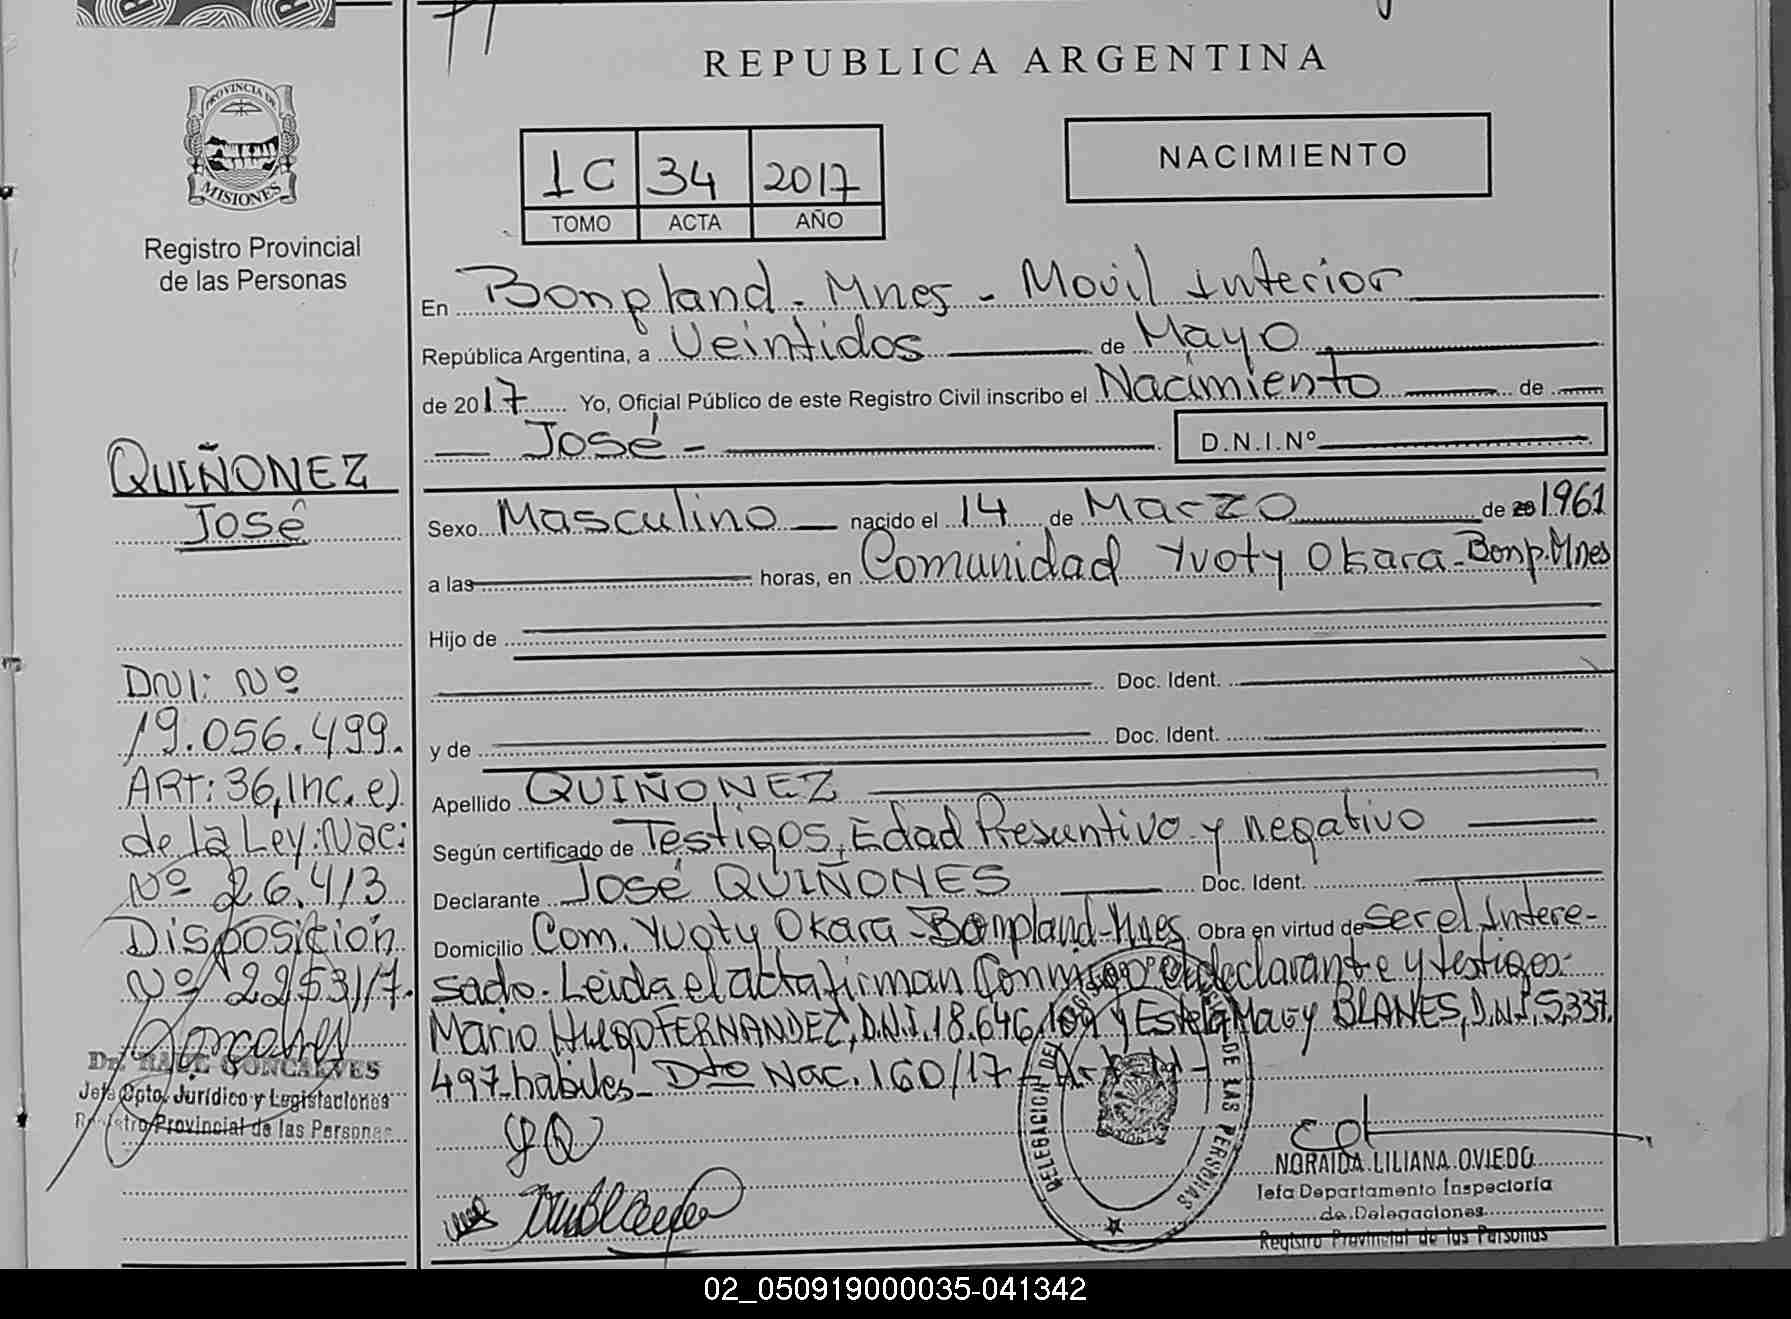 REPUBLICA ARGENTINA
PROVINCIA DE
MISIONES
Registro Provincial
de las Personas
1C 34 2017
TOMO ACTA AÑO
NACIMIENTO
En Bonpland - Mnes - Movil Interior
República Argentina, a Veintidos de Mayo
de 2017 Yo, Oficial Público de este Registro Civil inscribo el Nacimiento de
José -
D.N.I.Nº
QUIÑONEZ
José
Sexo Masculino nacido el 14 de Marzo de 20 1961
a las horas, en Comunidad Yvoty Okara - Bonp. Mnes
Hijo de
Doc. Ident.
y de Doc. Ident.
Apellido QUIÑONEZ
Según certificado de Testigos, Edad Presuntivo y negativo
Declarante José QUIÑONES Doc. Ident.
Domicilio Com. Yvoty Okara - Bonpland - Mnes Obra en virtud de ser el Intere-
sado. Leida el acta firman Conmigo el declarante y testigos:
Mario Hugo FERNANDEZ, D.N.I. 18.646. y Estela Mary BLANES, D.N.I. 5.337.
497 habiles - Dto Nac. 160/17 -
DNI: Nº
19.056.499.
ART: 36, Inc. e)
de la Ley: Nac:
Nº 26.413
Disposición
Nº 2253/17.
Dr. RAUL GONCALVES
Jefe Dpto. Jurídico y Legislaciones
Registro Provincial de las Personas
JQ
DELEGACION DE
DE LAS PERSONAS
NORAIDA LILIANA OVIEDO
Jefa Departamento Inspectoria
de Delegaciones
Registro Provincial de las Personas
02_050919000035-041342